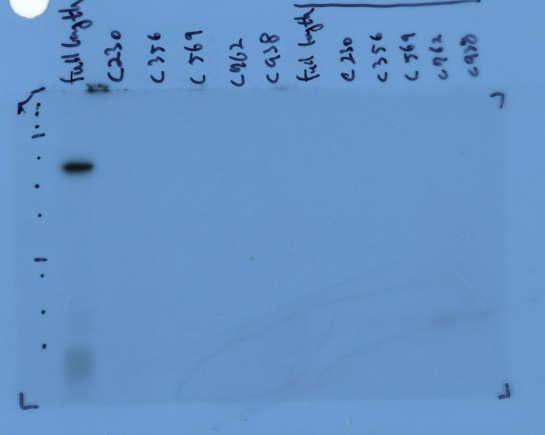 Full length C230 C356 C569 C762 C938 full length C230 C356 C569 C762 C938